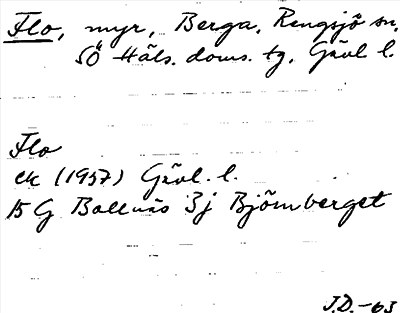 Flo, myr, Berga, Rengsjö sn,
SÖ Häls. doms. tg, Gävl l.
Flo
ek (1957) Gävl. l.
15 G Bollnäs 3j Björnberget
J.D.-63